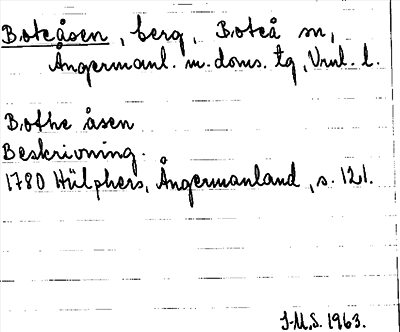 Boteåsen, berg, Boteå sn,
Ångermanl. m. doms. tg, Vnl. l.
Bothe åsen
Beskrivning.
1780 Hülphers, Ångermanland, s. 121.
J.M.S. 1963.